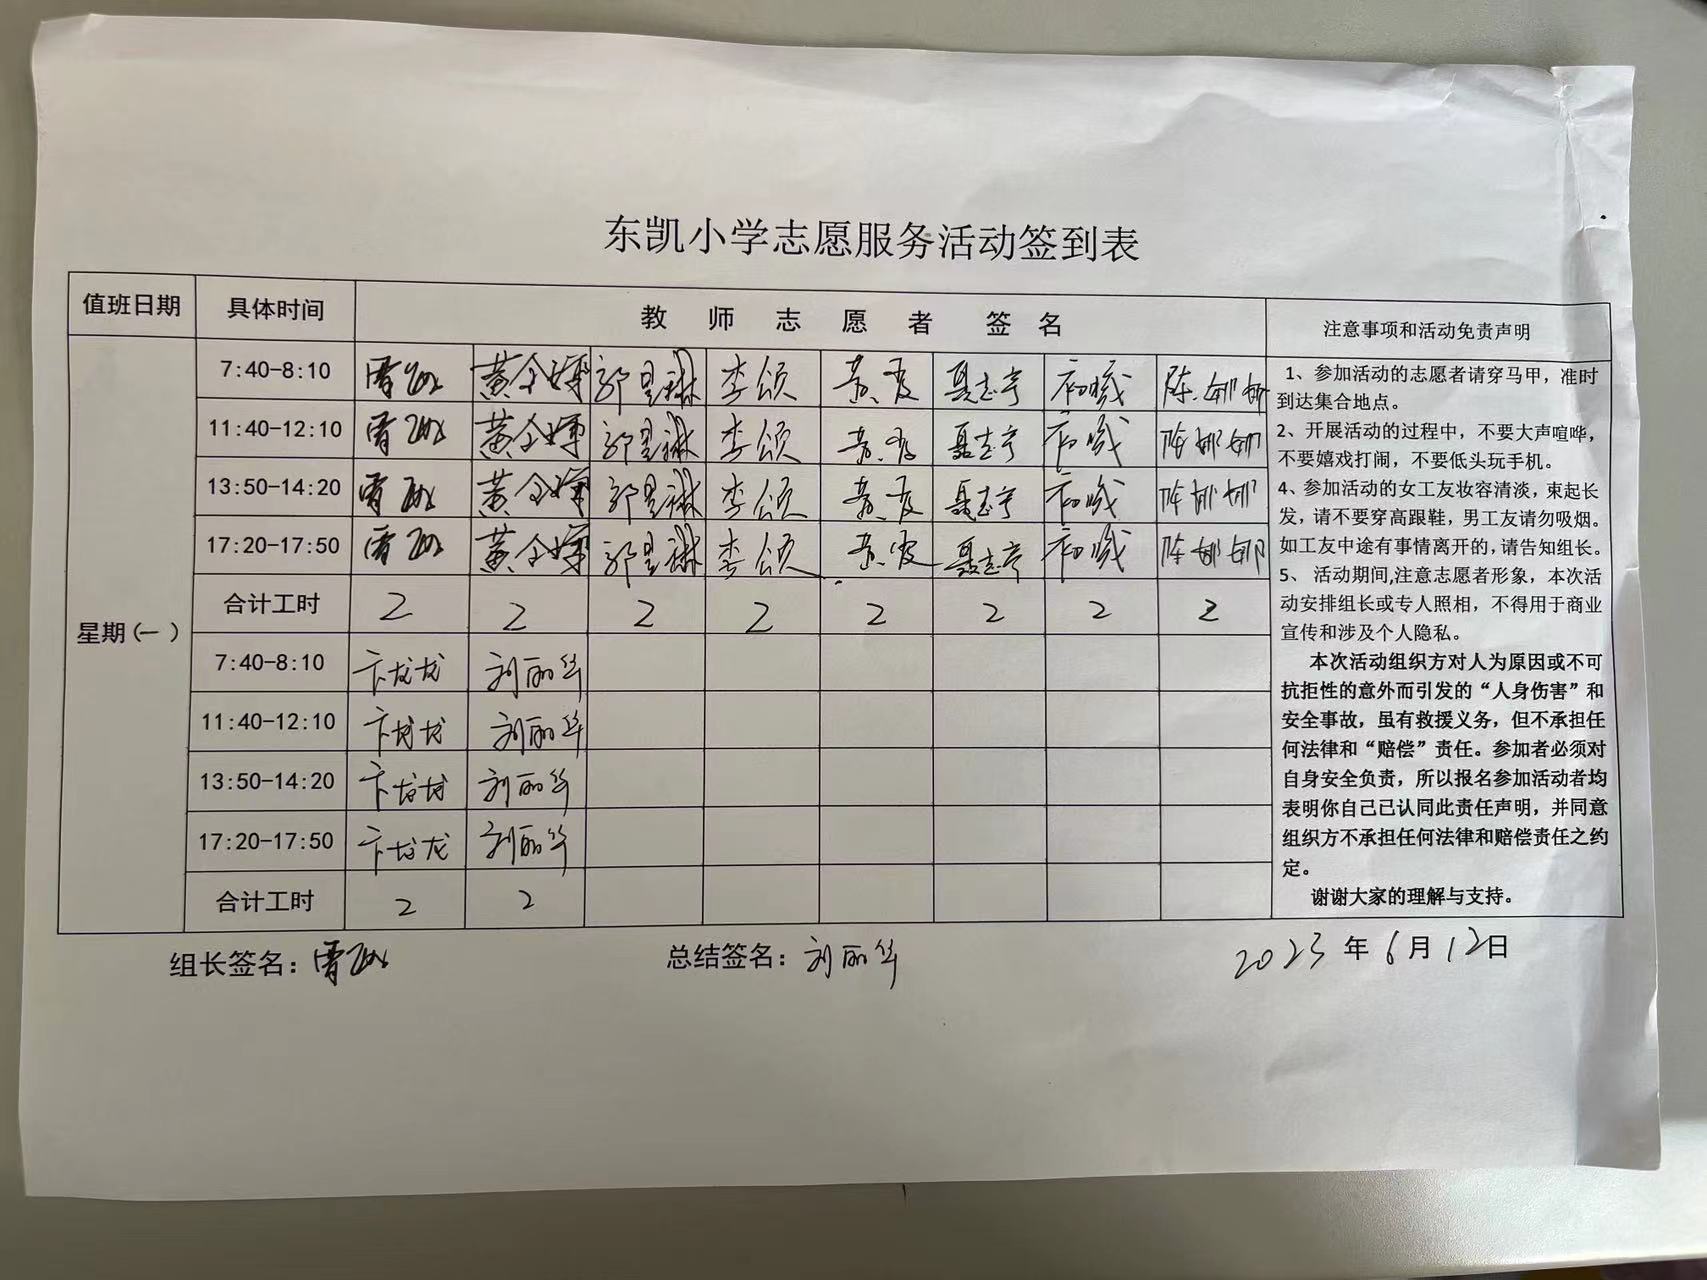 东凯小学志愿服务活动签到表
值班日期 具体时间 教师志愿者 签名 注意事项和活动免责声明
星期(一)
7:40-8:10 李颂 聂志宇 陈娜娜
11:40-12:10 李颂 聂志宇 陈娜娜
13:50-14:20 李颂 聂志宇 陈娜娜
17:20-17:50 李颂 聂志宇 陈娜娜
合计工时 2 2 2 2 2 2 2 2
7:40-8:10 卞龙龙 刘丽华
11:40-12:10 卞龙龙 刘丽华
13:50-14:20 卞龙龙 刘丽华
17:20-17:50 卞龙龙 刘丽华
合计工时 2 2
1、参加活动的志愿者请穿马甲，准时
到达集合地点。
2、开展活动的过程中，不要大声喧哗，
不要嬉戏打闹，不要低头玩手机。
4、参加活动的女工友妆容清淡，束起长
发，请不要穿高跟鞋，男工友请勿吸烟。
如工友中途有事情离开的,请告知组长。
5、 活动期间,注意志愿者形象，本次活
动安排组长或专人照相，不得用于商业
宣传和涉及个人隐私。
本次活动组织方对人为原因或不可
抗拒性的意外而引发的“人身伤害”和
安全事故，虽有救援义务，但不承担任
何法律和“赔偿”责任。参加者必须对
自身安全负责，所以报名参加活动者均
表明你自己己认同此责任声明，并同意
组织方不承担任何法律和赔偿责任之约
定。
谢谢大家的理解与支持。
组长签名： 总结签名：刘丽华 2023年6月12日